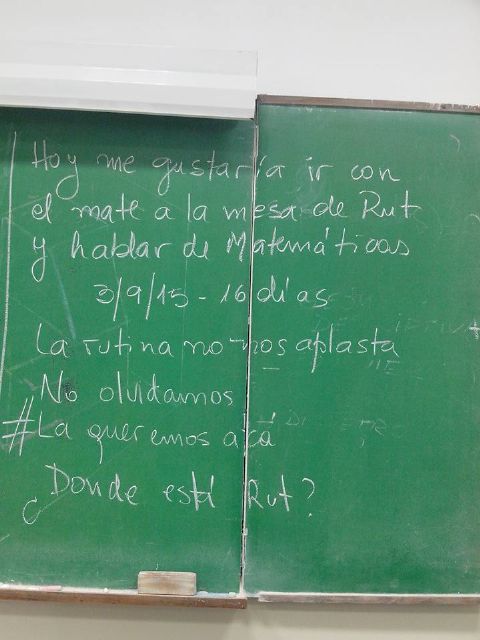 Hoy me gustaría ir con
el mate a la mesa de Rut
y hablar de Matemáticas
3/9/15 - 16 días
La rutina no nos aplasta
No olvidamos
#La queremos acá
¿Donde está Rut?